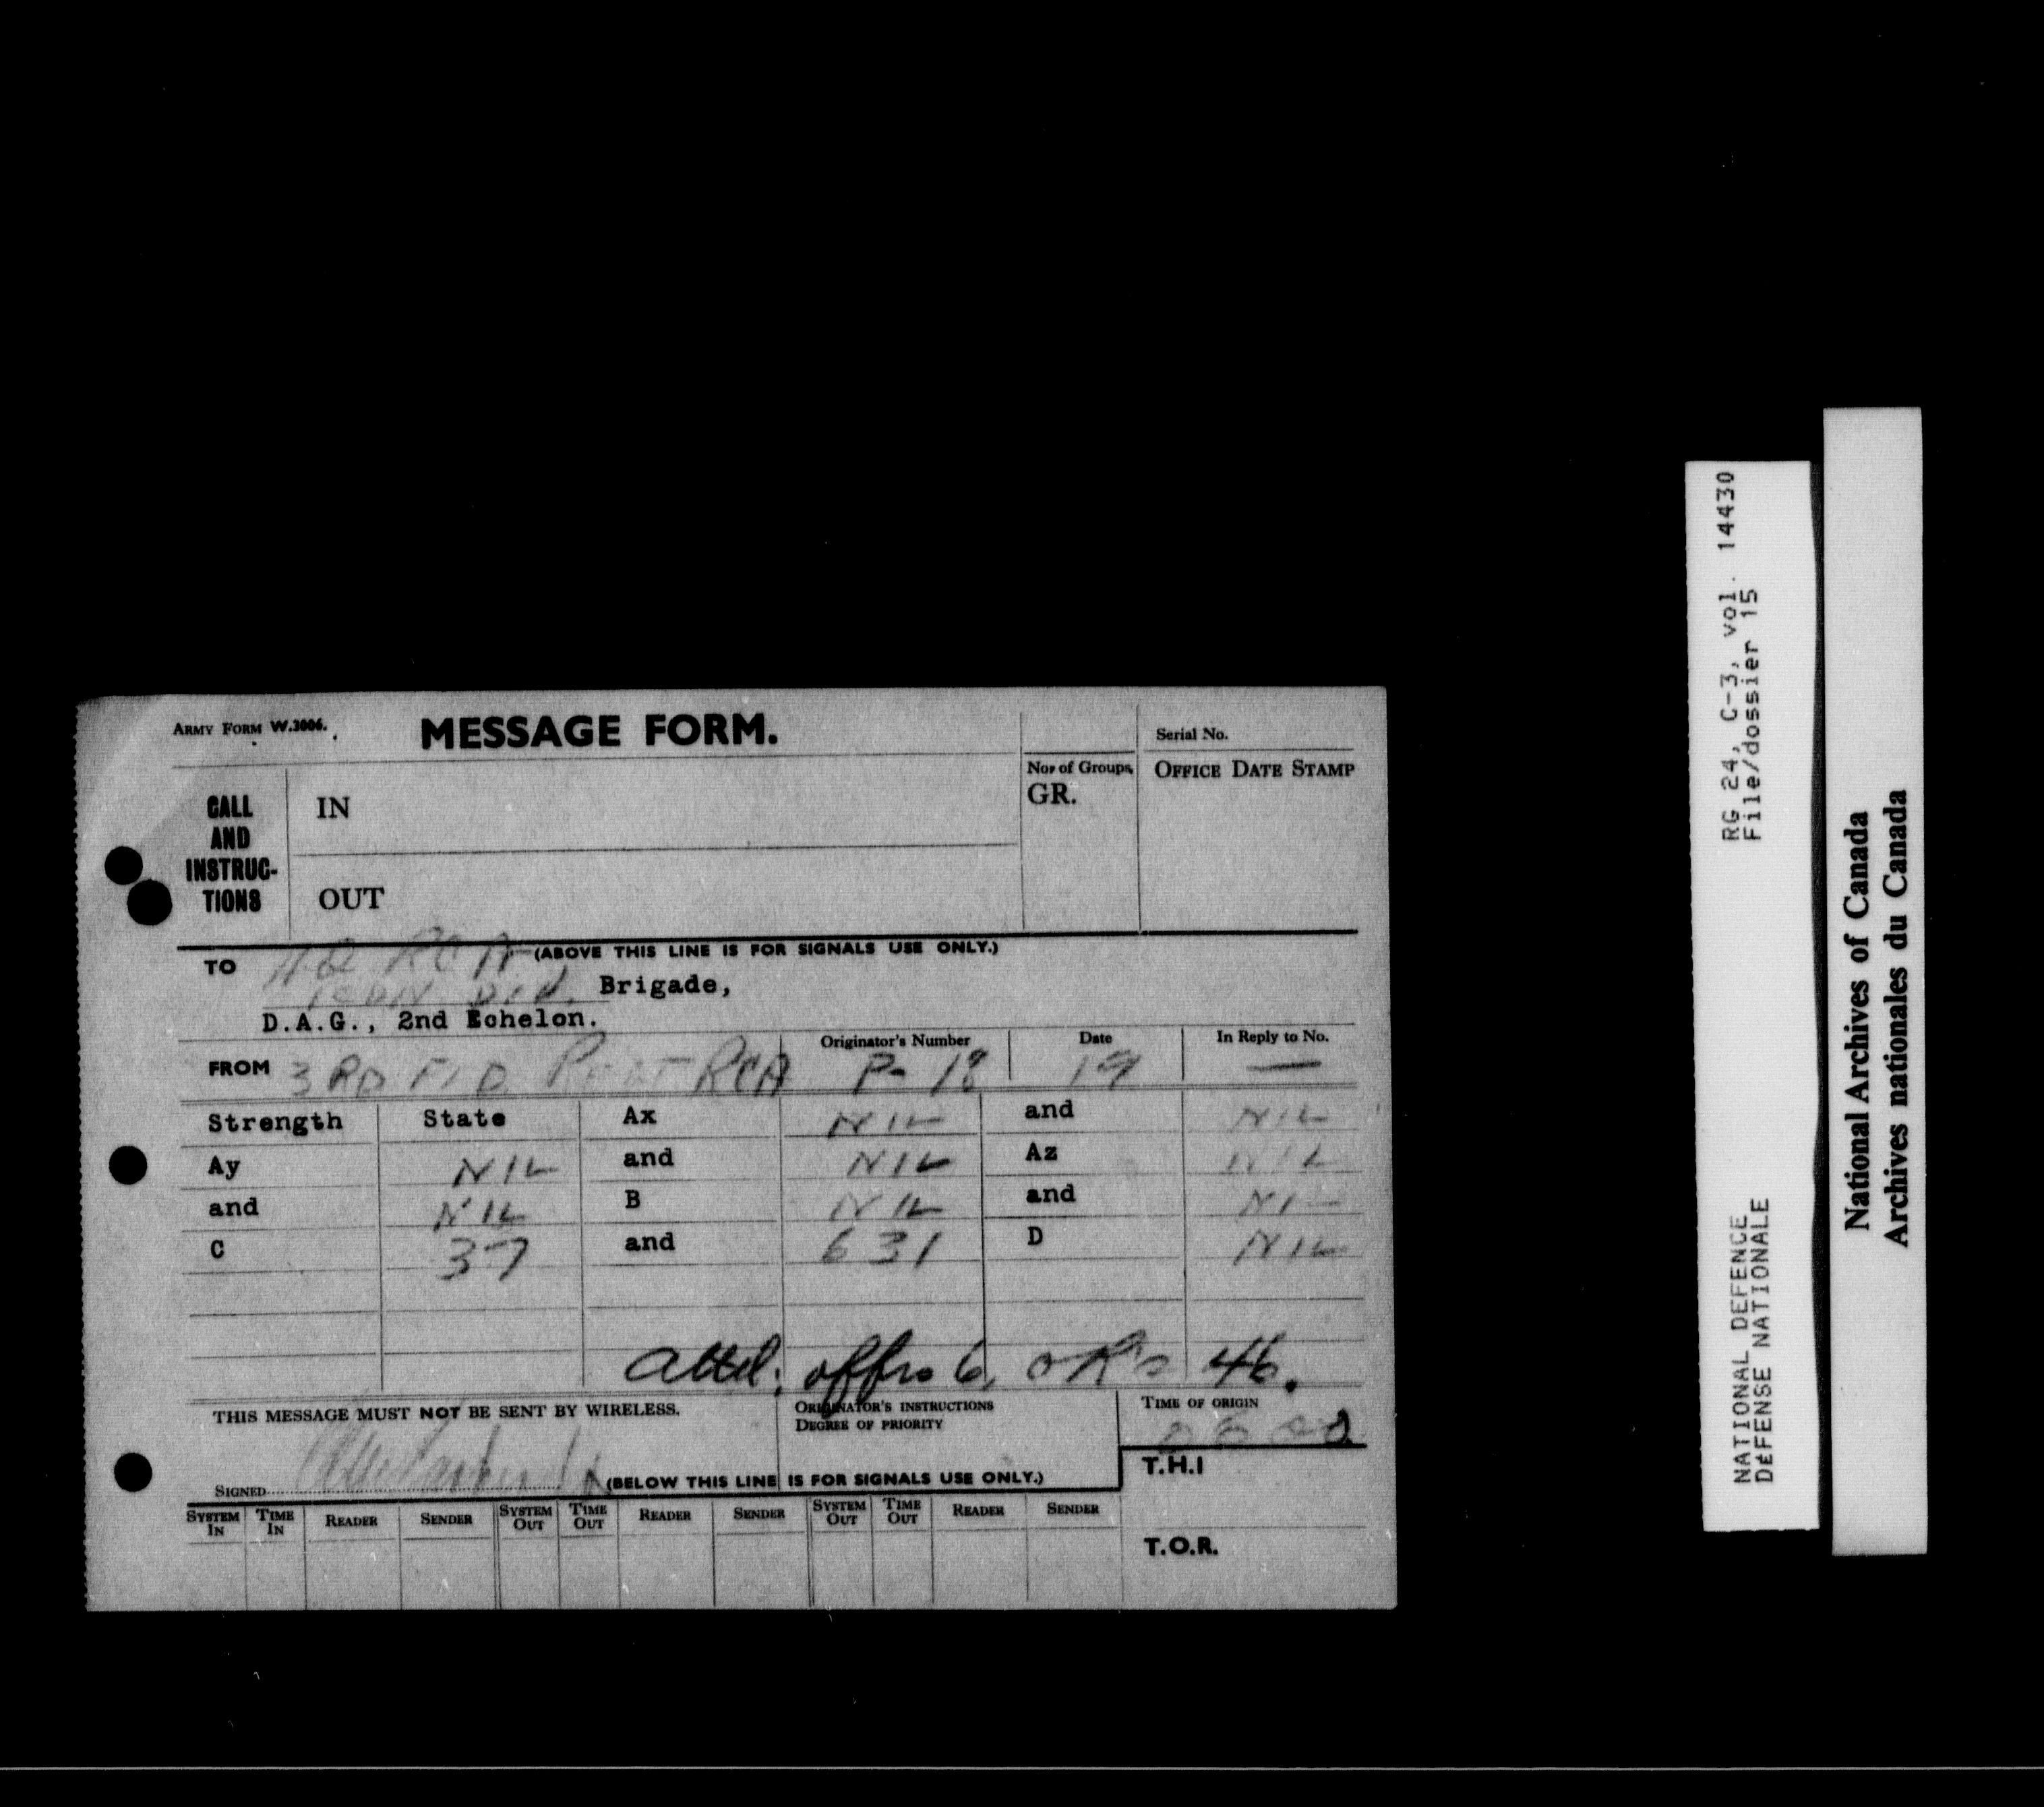 ARMY FORM W.3006.
MESSAGE FORM.
Serial No.
CALL AND INSTRUC-TIONS
IN
OUT
No. of Groups,
GR.
OFFICE DATE STAMP
(ABOVE THIS LINE IS FOR SIGNALS USE ONLY.)
TO HQ RCA
1 CDN Div. Brigade,
D.A.G., 2nd Echelon.
FROM 3 RD FLD REGT RCA Originator's Number P- 18 Date 19 In Reply to No. —
Strength State Ax NIL and NIL
Ay NIL and NIL Az NIL
and NIL B NIL and NIL
C 37 and 631 D NIL
Attd: offrs 6, OR's 46.
THIS MESSAGE MUST NOT BE SENT BY WIRELESS.
ORIGINATOR'S INSTRUCTIONS
DEGREE OF PRIORITY
TIME OF ORIGIN
SIGNED
(BELOW THIS LINE IS FOR SIGNALS USE ONLY.)
T.H.I
SYSTEM IN TIME IN READER SENDER SYSTEM OUT TIME OUT READER SENDER SYSTEM OUT TIME OUT READER SENDER
T.O.R.
NATIONAL DEFENCE RG 24, C-3, vol. 14430
DÉFENSE NATIONALE File/dossier 15
National Archives of Canada
Archives nationales du Canada